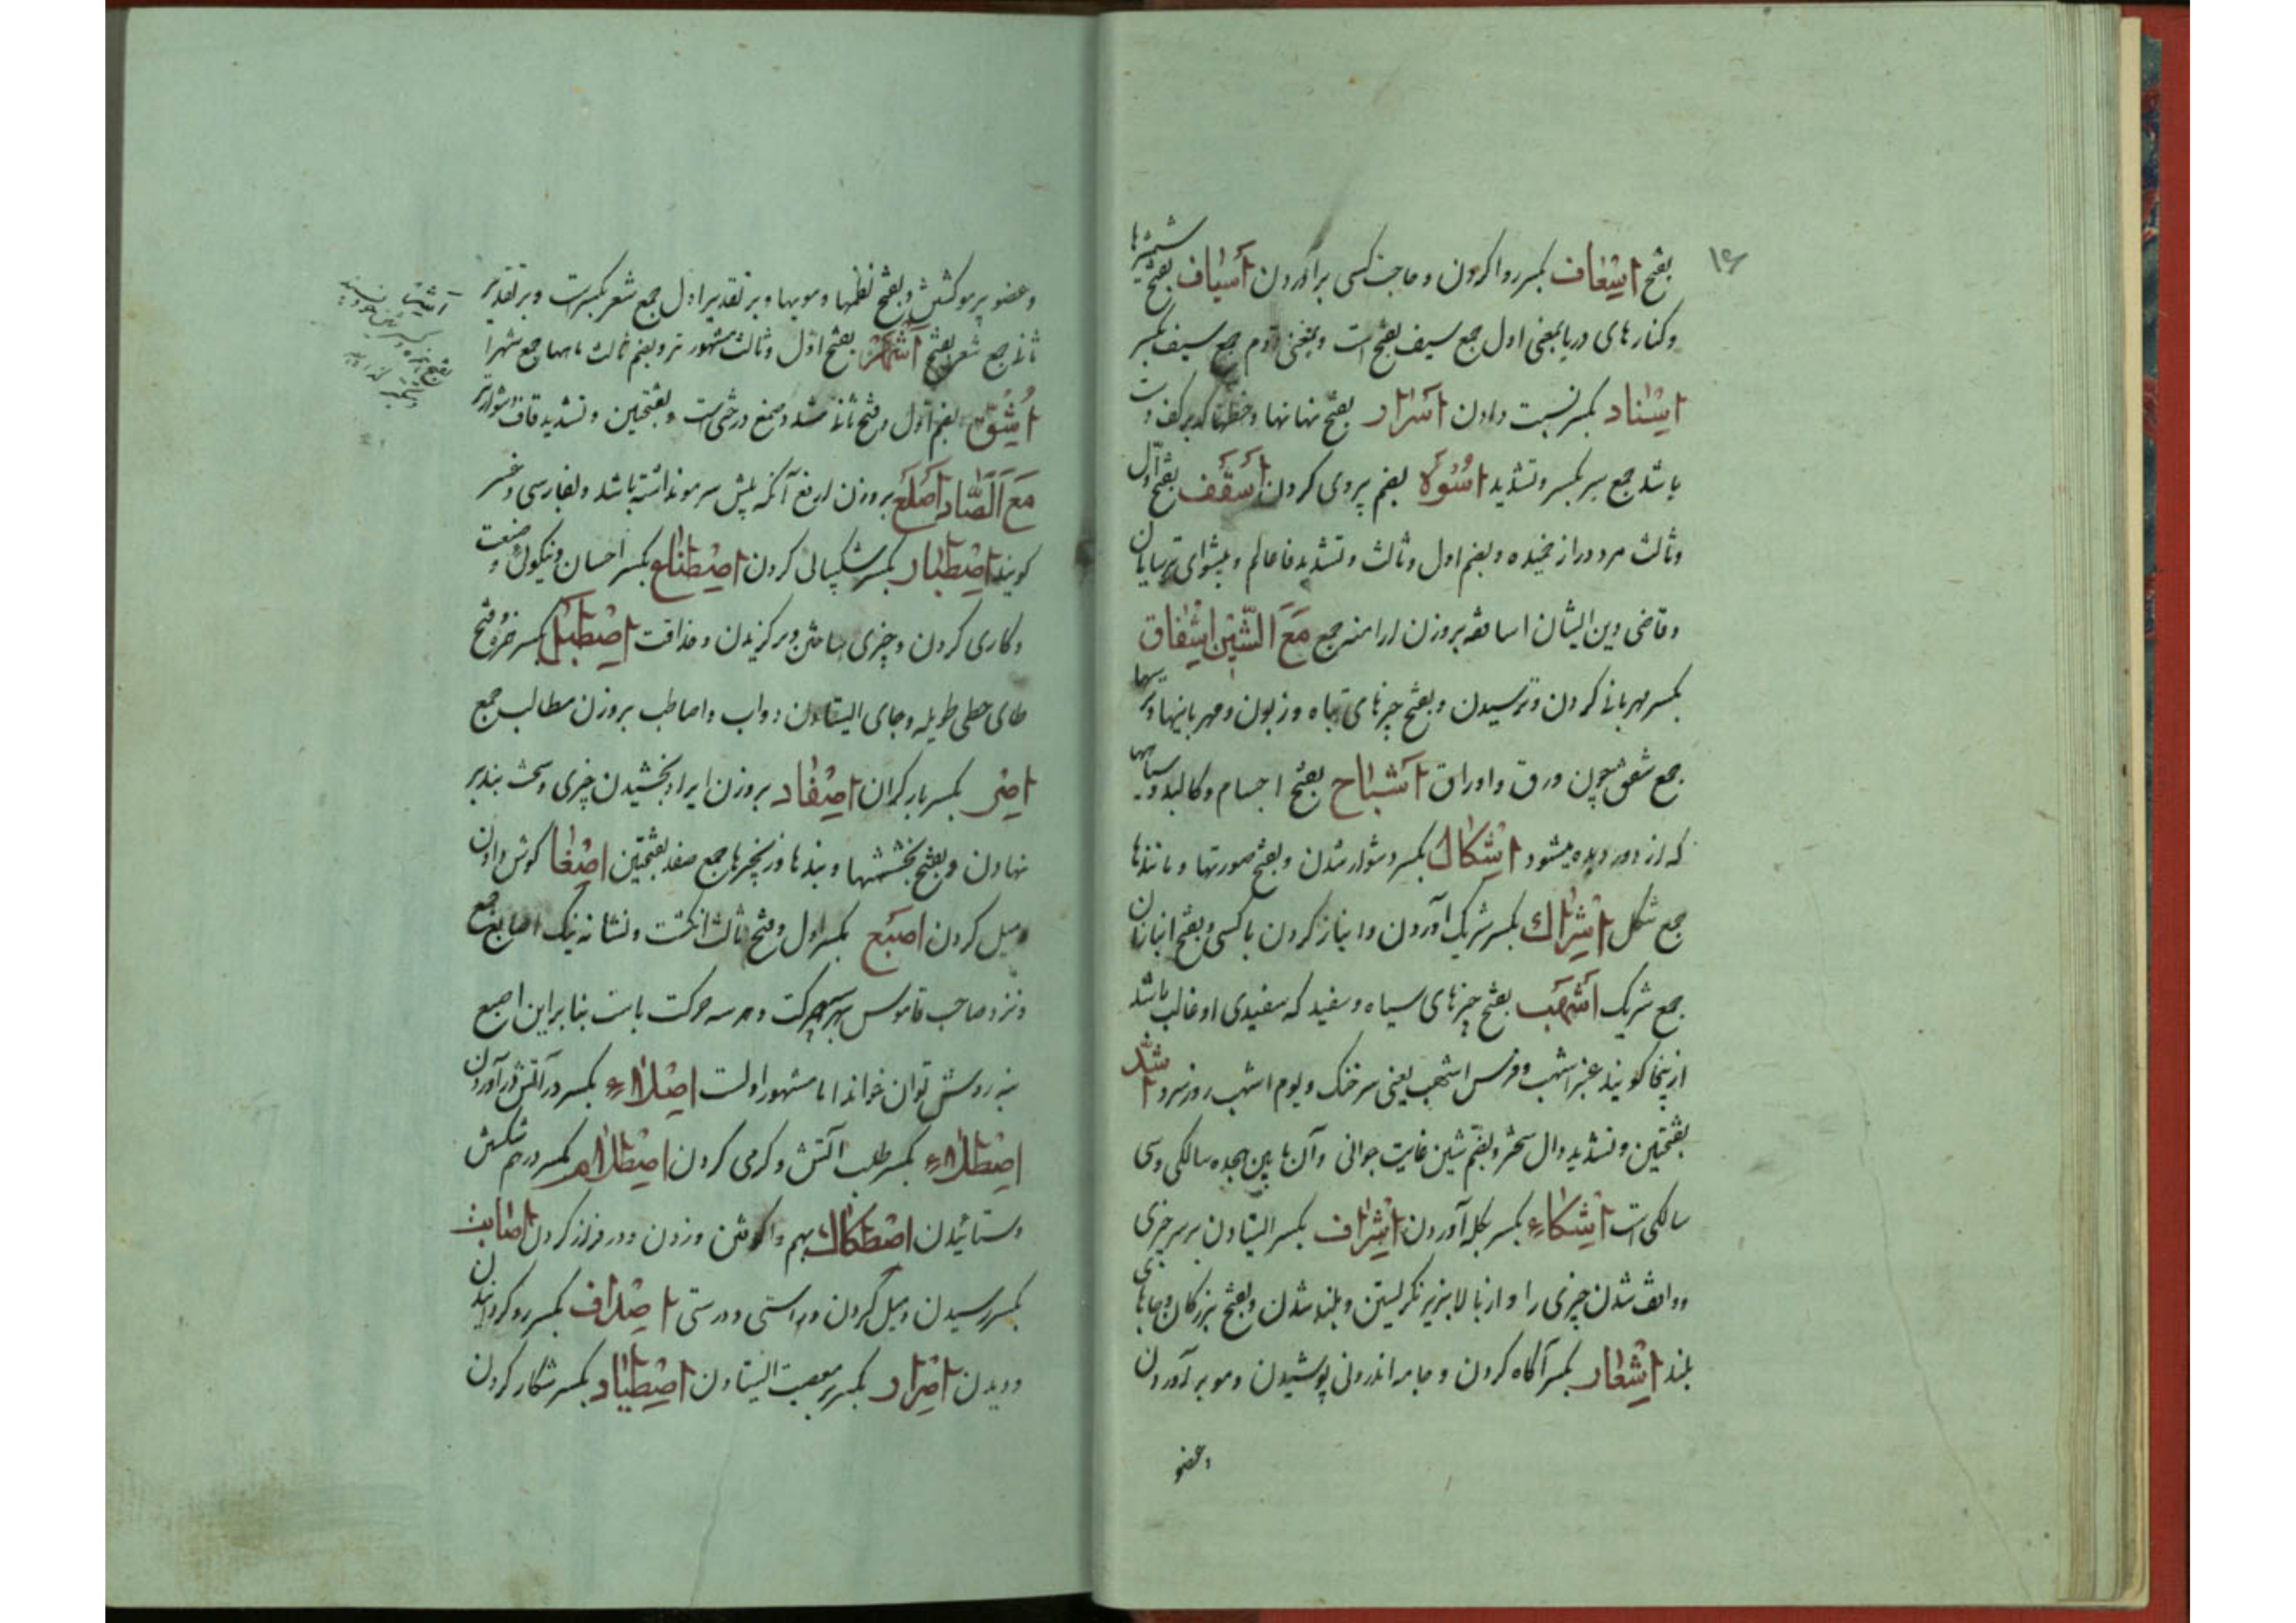 بفتح اسعاف بکسر روا کردن و حاجت کسی برآوردن اسیاف بفتح شمشیرها
و کنارهای دریا بمعنی اول جمع سیف بفتح است و بمعنی دوم جمع سیف بکسر
اسناد بکسر نسبت دادن اسرار بفتح نهانها و خطها که بر کف دست
باشد جمع سر بکسر و تشدید اسوه بضم پیروی کردن اسقف بفتح اول
و ثالث مرد دراز خمیده و بضم اول و ثالث و تشدید فا عالم و پیشوای ترسایان
و قاضی دین ایشان اساقفه بروزن ارامنه جمع مع الشین اشفاق
بکسر مهربانی کردن و ترسیدن و بفتح چیزهای تباه و زبون و مهربانیها و ترسیها
جمع شفق چون ورق و اوراق اشباح بفتح اجسام و کالبد و سیاهیها
که از دور دیده میشود اشکال بکسر دشوار شدن و بفتح صورتها و مانندها
جمع شکل اشراک بکسر شریک آوردن و انباز کردن با کسی و بفتح انبازان
جمع شریک اشهب بفتح چیزهای سیاه و سفید که سفیدی او غالب باشد
ازینجا کویند عنبر اشهب و فرس اشهب یعنی سرخنک و یوم اشهب روز سرد اشد
بفتحتین و تشدید دال سخت‌تر و بضم شین غایت جوانی و آن مابین هجده سالکی و سی
سالکی است اشکاء بکسر بکله آوردن اشراف بکسر ایستادن بر سر چیزی
و واقف شدن چیزی را و از بالا بزیر نکریستن و بلند شدن و بفتح بزرکان و جاهای
بلند اشعار بکسر آکاه کردن و جامه اندرونی پوشیدن و مو برآوردن
وعضو
وعضو پر مو کشتن و بفتح نظمها و مویها و بر تقدیر اول جمع شعر بکسرست و بر تقدیر
ثانی جمع شعر بفتح اشهر بفتح اول و ثالث مشهورتر و بضم ثالث ماهها جمع شهر
اشق بضم اول و فتح ثانی مشدد صمغ درختی است و بفتحتین و تشدید قاف دشوارتر
مع الصاد اصلع بروزن ارفع آنکه پیش سر مو نداشته باشد و بفارسی
کویند اصطبار بکسر شکیبائی کردن اصطناع بکسر احسان و نیکوئی و صنعت
و کاری کردن و چیزی ساختن و برکزیدن و حذاقت اصطبل بکسر همزه و فتح
طای حطی طویله و جای ایستادن دواب و اصاطب بروزن مطالب جمع
اصر بکسر بار کران اصفاد بروزن ایراد بخشیدن چیزی و سخت بند بر
نهادن و بفتح بخششها و بندها و زنجیرها جمع صفد بفتحتین اصغا کوش دادن
و میل کردن اصبع بکسر اول و فتح ثالث انکشت و نشانه نیک اصابع جمع
و نزد صاحب قاموس بهر سه حرکت و هر سه حرکت با بنا براین اصبع
بنه روش توان خواند اما مشهور اولست اصلاء بکسر در آتش درآوردن
اصطلاء بکسر طلب آتش و کرمی کردن اصطلام بکسر درهم شکستن
و ستائیدن اصطکاک بهم واکوفتن و زدن و در فراز کردن اصابت
بکسر رسیدن و میل کردن و راستی و درستی اصداف بکسر رو کردانیدن
و دیدن اصرار بکسر بر معصیت ایستادن اصطیاد بکسر شکار کردن